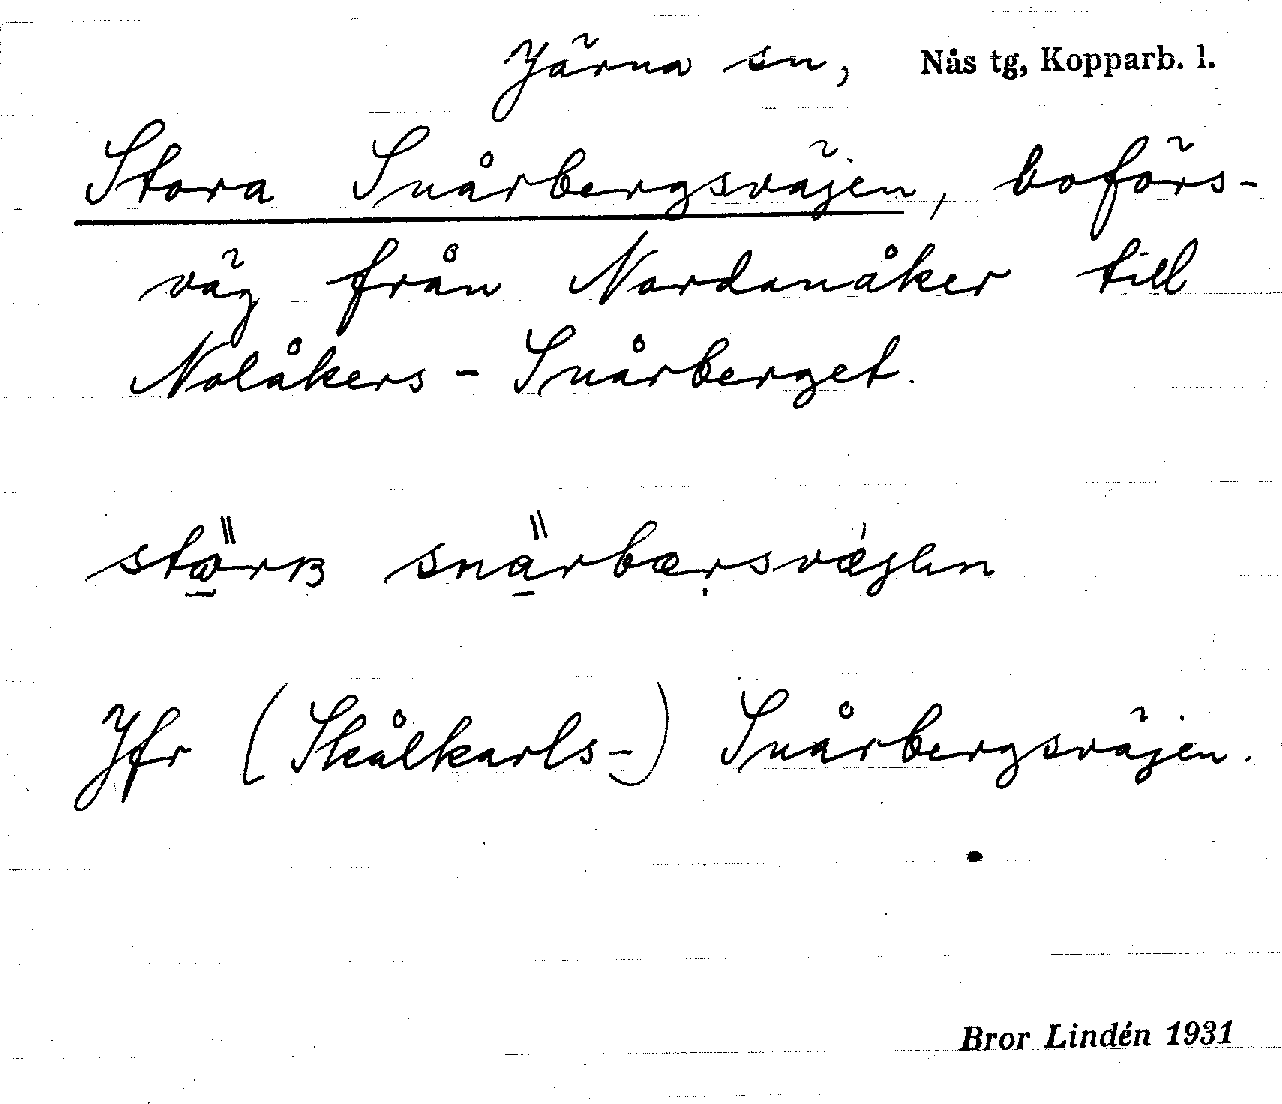 Järna sn, Nås tg, Kopparb. l.
Stora Snårbergsväjen, boförs-
väg från Nordanåker till
Nolåkers-Snårberget.
Jfr (Skålkarls-) Snårbergsväjen.
Bror Lindén 1931